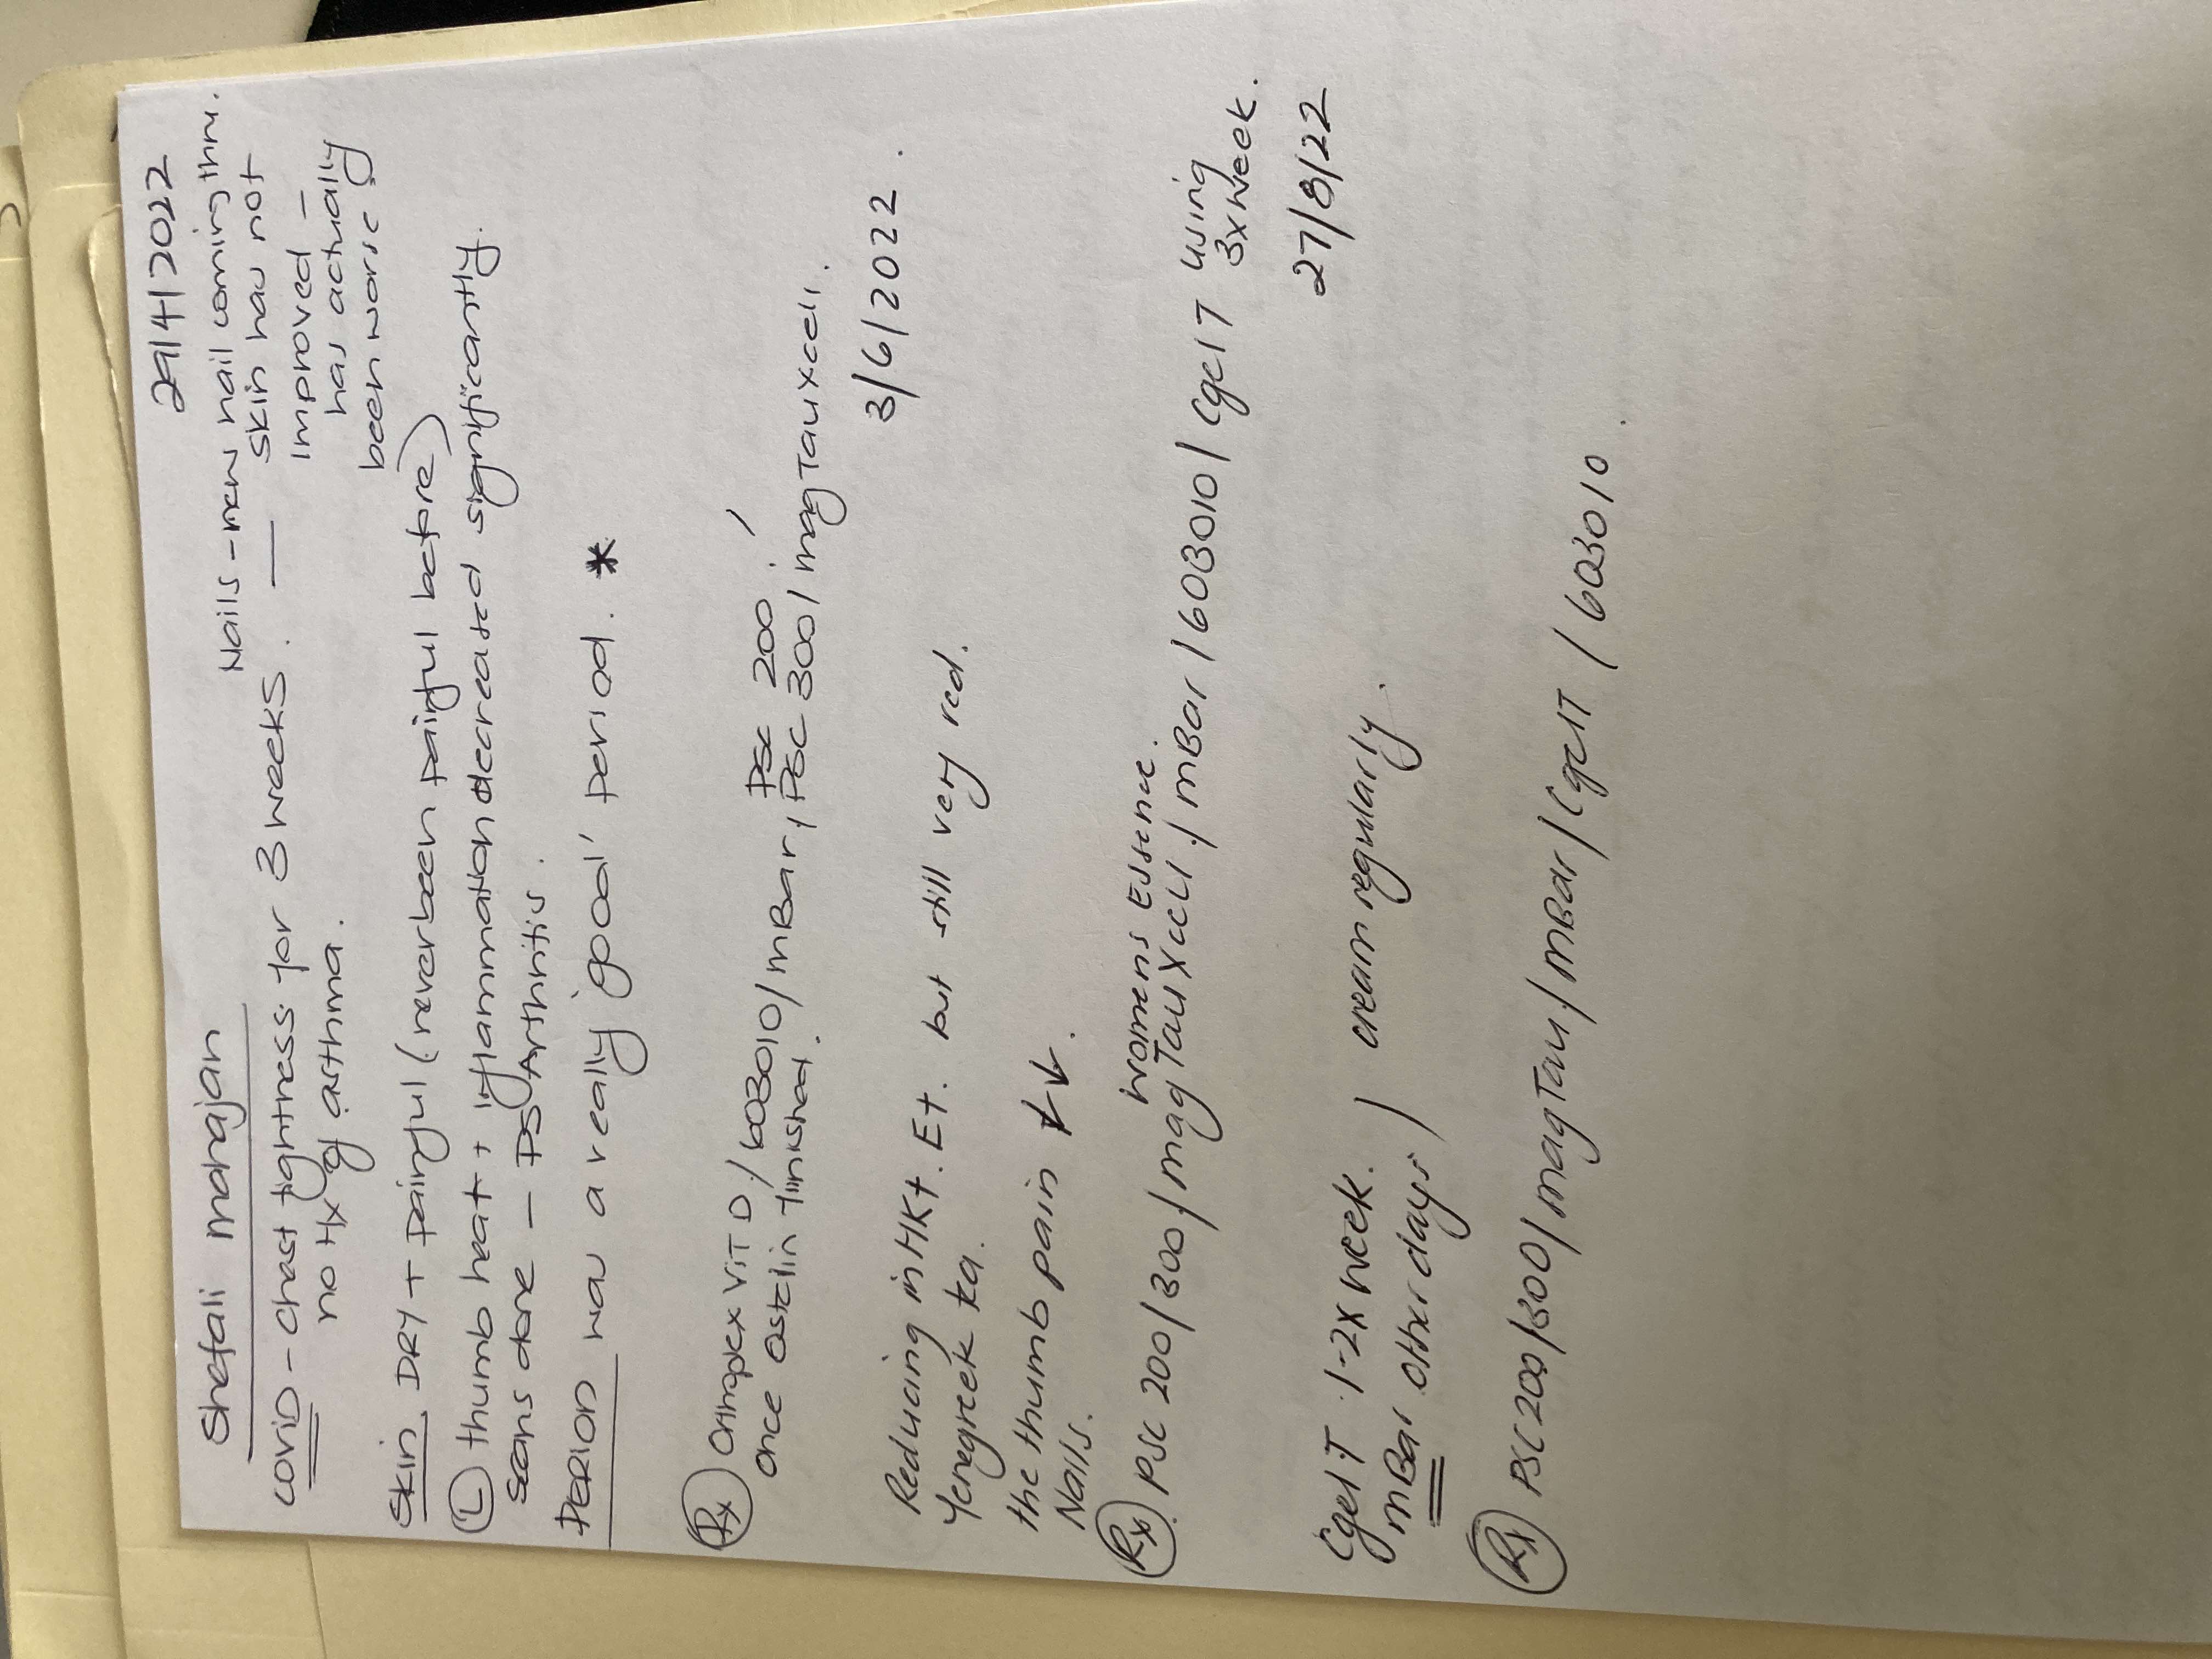 29/4/2022
Shefali Mahajan
Nails - new nail coming thru.
COVID - chest tightness for 3 weeks. — skin has not
no Hx of asthma.
improved -
has actually
been worse
Skin. DRY + Painful (never been painful before)
(L) thumb heat + inflammation decreased significantly.
Scans done - PS Arthritis.
PERIOD was a really 'good' period. *
(Rx) Orthoplex Vit D / 603010 / MBar, PSC 200,
once Ostelin finished. PSC 300 / magTauXcell.
3/6/2022.
Reducing in HKt. Et. but still very red.
Fenegreek ka.
the thumb pain ↓↓.
Nails.
Womens Essence.
(Rx). PSC 200/300/magTauXcell./MBar/603010/CgelT using
3xweek.
27/8/22
CgelT 1-2x week.
MBar other days / cream regularly.
(Rx) PSC200/300/magTau/MBar/CgelT/603010.